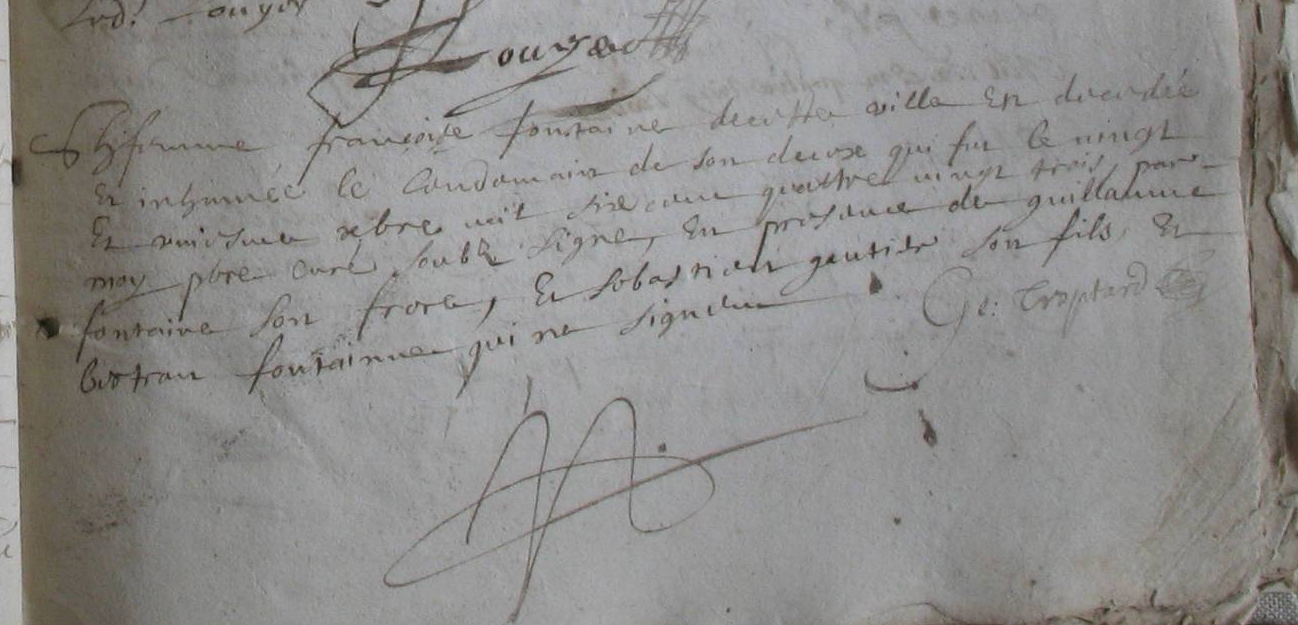 Louyer
Louyer
femme françoise fontaine decette ville Est decedée
Et inhumée le Lendemain de son decex qui fut le vingt
Et xbre mil six cent quattre vingt trois par
moy pbre Curé soubz signé, En presance de guillaume
fontaine son frere, Et sebastien gautier son fils, Et
bertran fontainne qui ne signent
Ge: Troptard